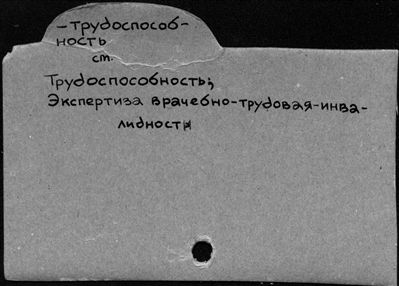 -трудоспособ-
ность
см.
Трудоспособность;
Экспертиза врачебно-трудовая-инва-
лидность